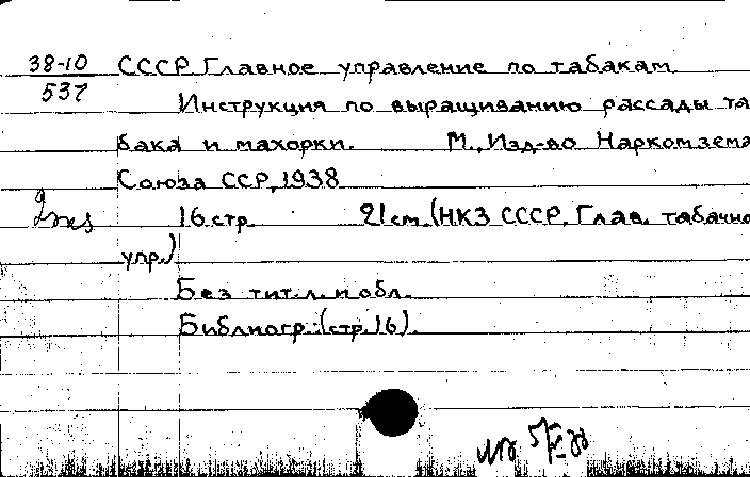 38-10 СССР. Главное управление по табакам.
537 Инструкция по выращиванию рассады та
бака и махорки. М., Изд-во Наркомзема
Союза ССР, 1938
2 экз 16 стр. 21 см. (НКЗ СССР. Глав. табачно
упр.)
Без тит. л. и обл.
Библиогр.: (стр. 16).